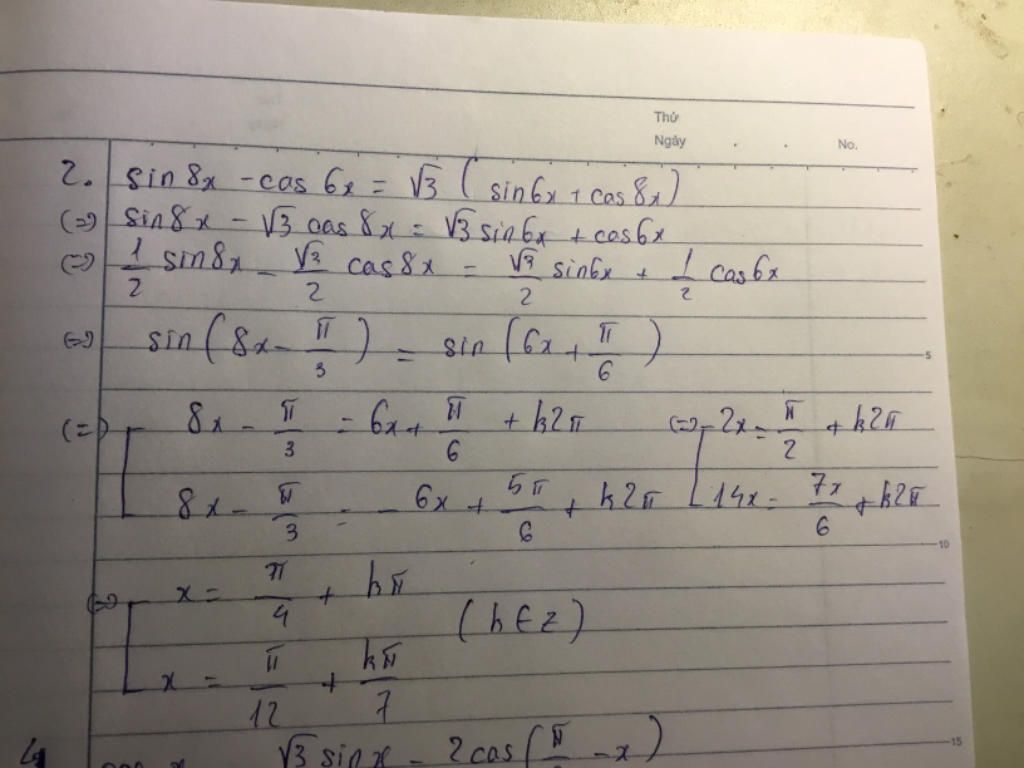 Thứ
Ngày . . No.
2. sin8x - cos 6x = √3 ( sin6x + cos8x)
(=>) sin8x - √3 cos 8x = √3 sin6x + cos6x
(=>) 1/2 sin8x - √3/2 cos8x = √3/2 sin6x + 1/2 cos6x
(=>) sin(8x - π/3) = sin(6x + π/6)
5
(=>) [ 8x - π/3 = 6x + π/6 + k2π (=>) [ 2x = π/2 + k2π
8x - π/3 = - 6x + 5π/6 + k2π 14x = 7x/6 + k2π
10
(=>) [ x = π/4 + kπ
(k ∈ Z)
x = π/12 + kπ/7
15
4 √3 sinx - 2cos(π - x)